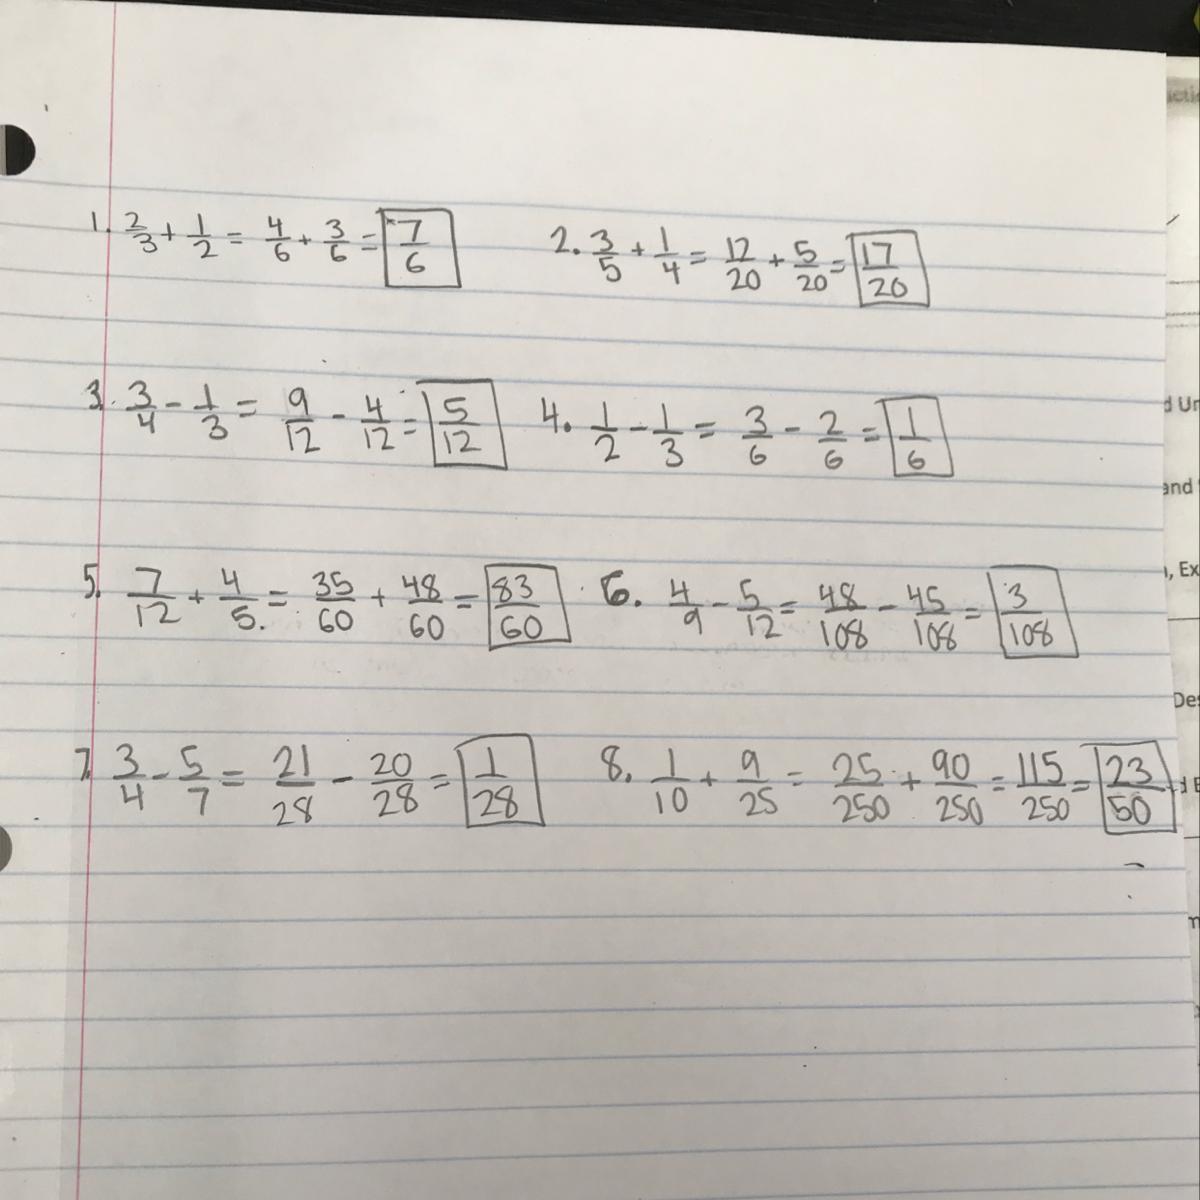 1. 2/3 + 1/2 = 4/6 + 3/6 = 7/6
2. 3/5 + 1/4 = 12/20 + 5/20 = 17/20
3. 3/4 - 1/3 = 9/12 - 4/12 = 5/12
4. 1/2 - 1/3 = 3/6 - 2/6 = 1/6
5. 7/12 + 4/5 = 35/60 + 48/60 = 83/60
6. 4/9 - 5/12 = 48/108 - 45/108 = 3/108
7. 3/4 - 5/7 = 21/28 - 20/28 = 1/28
8. 1/10 + 9/25 = 25/250 + 90/250 = 115/250 = 23/50
and